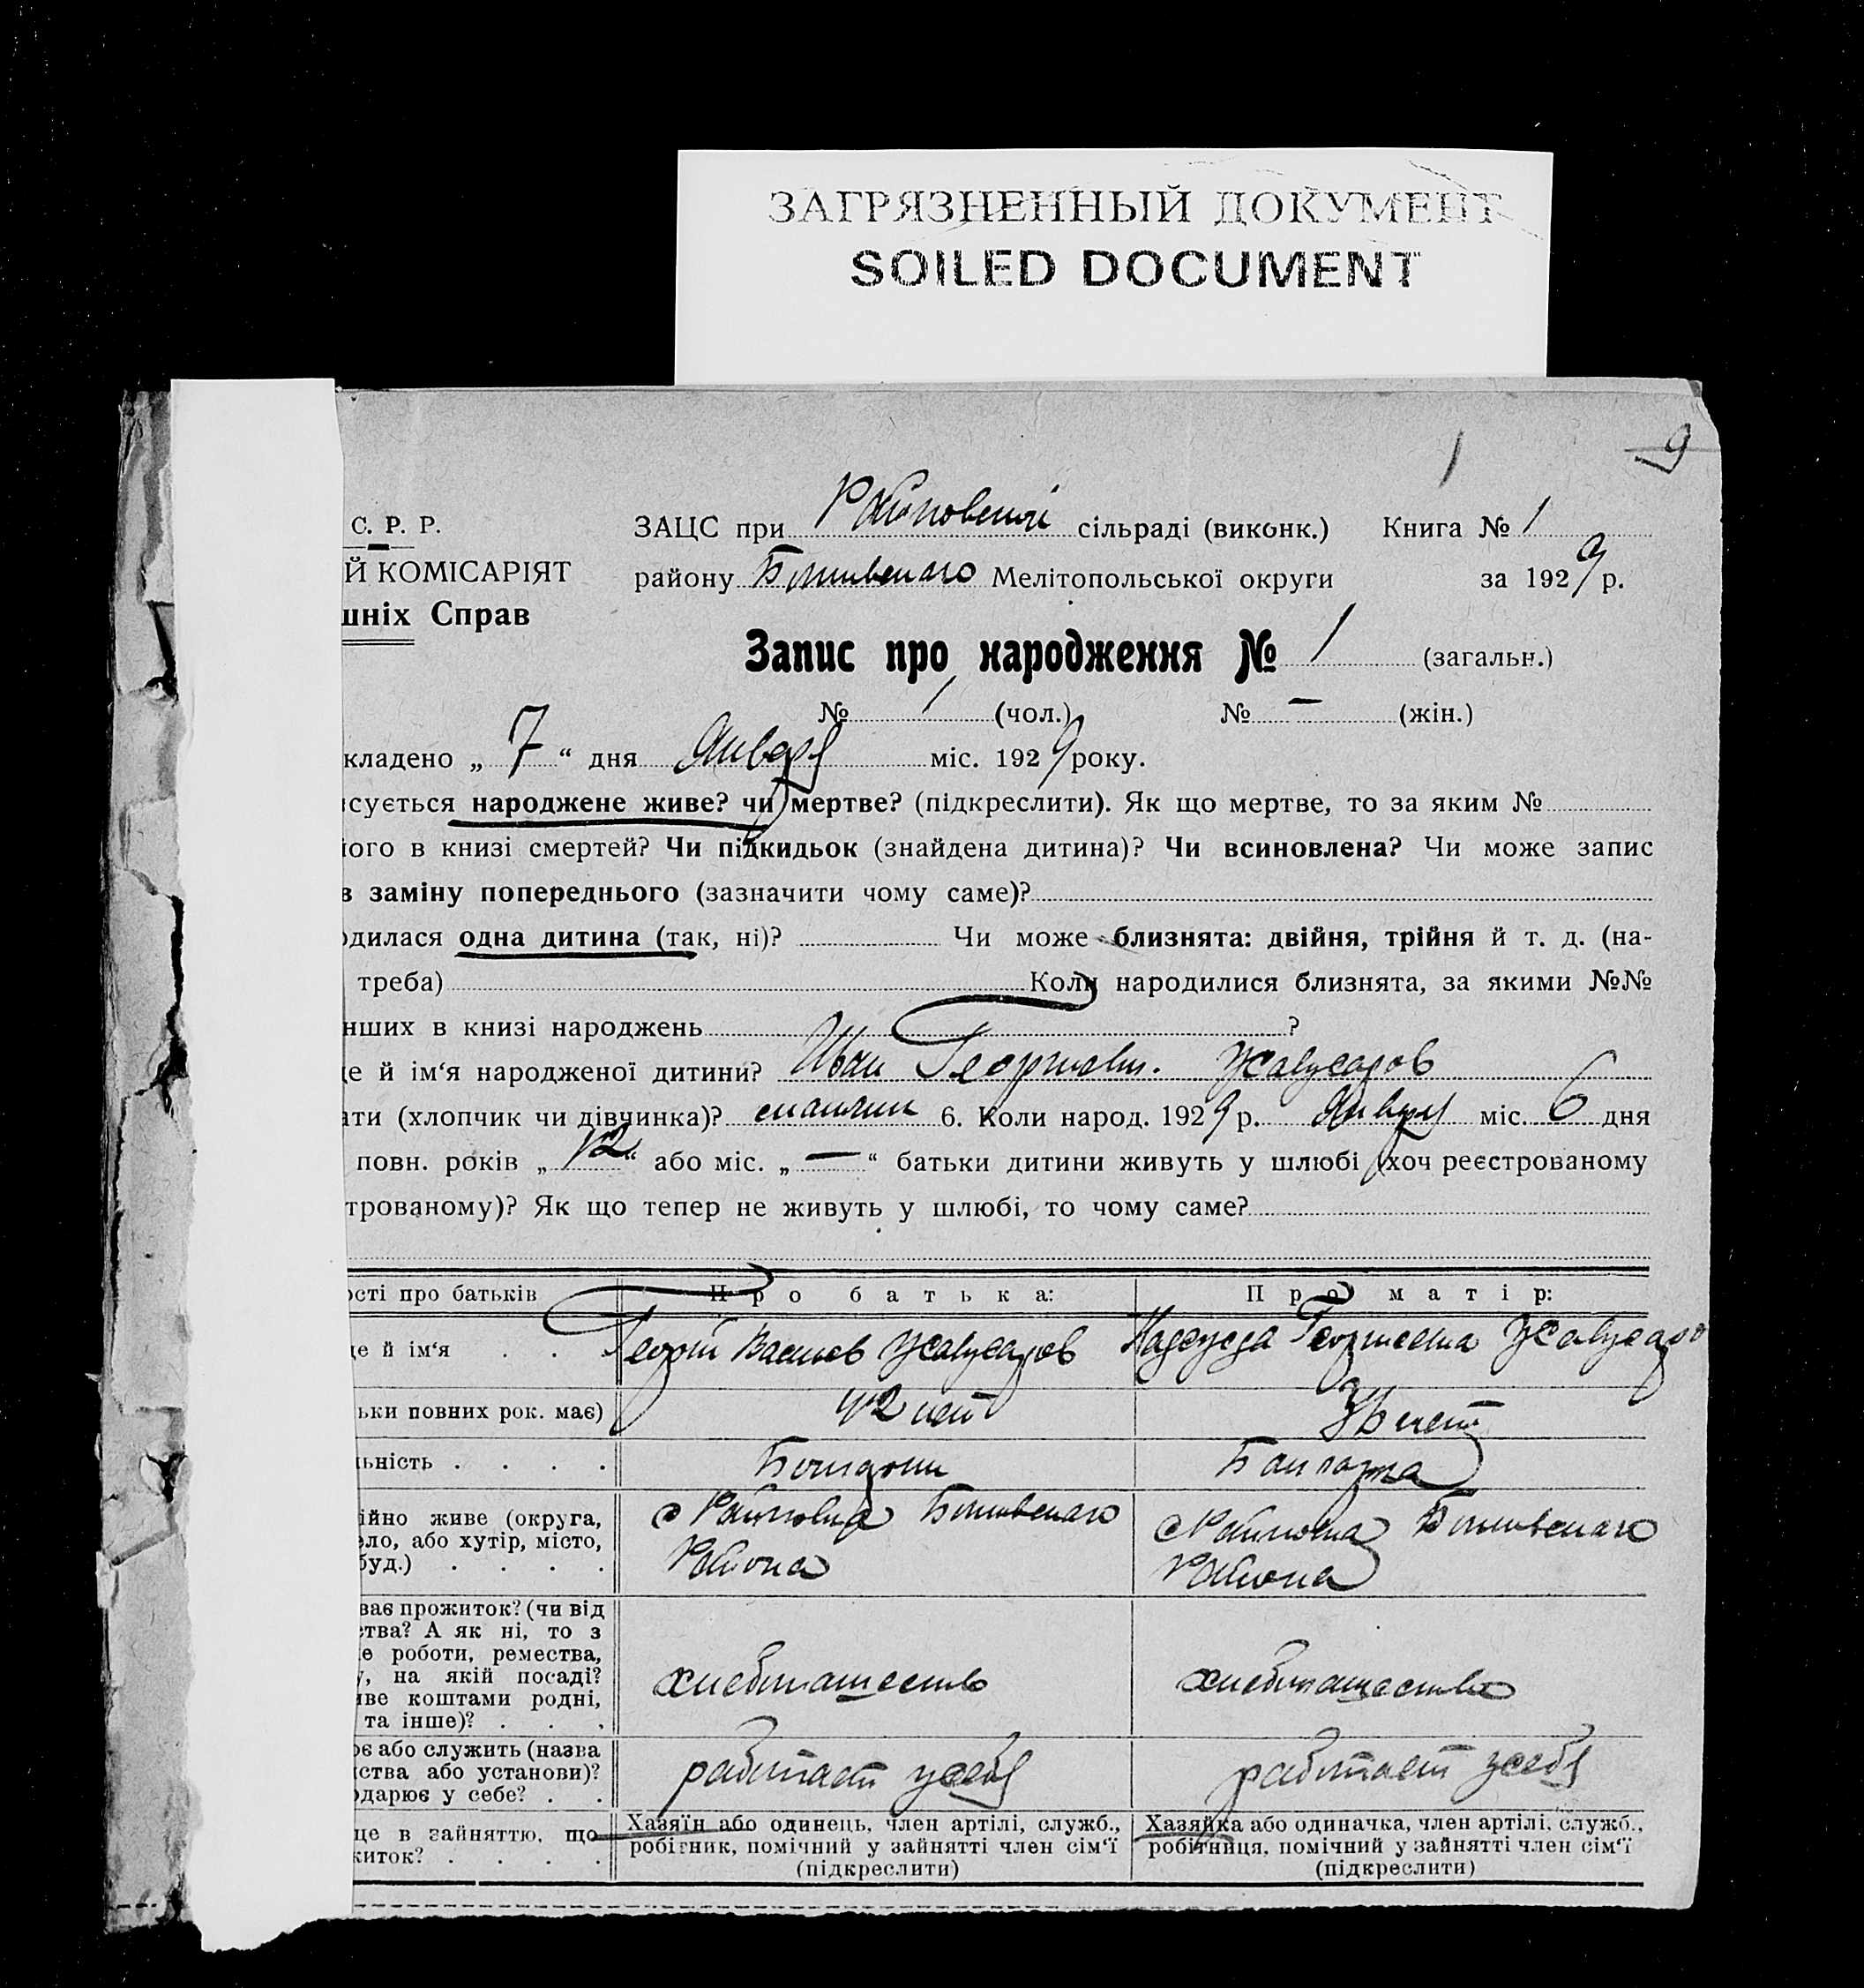 ЗАГРЯЗНЕННЫЙ ДОКУМЕНТ
SOILED DOCUMENT
1 9
С. Р. Р.
ЗАЦС при Райновской сільраді (виконк.) Книга № 1
Й КОМІСАРІЯТ
району Мелітопольської округи за 1929 р.
шніх Справ
Запис про народження № 1 (загальн.)
№ 1 (чол.) № — (жін.)
кладено „ 7 “ дня Января міс. 1929 року.
сується народжене живе? чи мертве? (підкреслити). Як що мертве, то за яким №
його в книзі смертей? Чи підкидьок (знайдена дитина)? Чи всиновлена? Чи може запис
в заміну попереднього (зазначити чому саме)?
одилася одна дитина (так, ні)? Чи може близнята: двійня, трійня й т. д. (на-
треба) Коли народилися близнята, за якими №№
нших в книзі народжень ?
це й ім‘я народженої дитини? Иван Георгиевич.
ати (хлопчик чи дівчинка)? 6. Коли народ. 1929 р. Января міс. 6 дня
повн. років „ 12 “ або міс. „ — “ батьки дитини живуть у шлюбі (хоч реєстрованому
трованому)? Як що тепер не живуть у шлюбі, то чому саме?
ості про батьків Про батька: Про матір:
це й ім‘я . . . Георгий Васильев Надежда Георгиевна
ьки повних рок. має) 42 лет лет
ьність . . . . Болгарин Болгарка
ійно живе (округа,
ело, або хутір, місто,
буд.) . . . .
с Райновка
Района
с Райновка
Района
ває прожиток? (чи від
ства? А як ні, то з
е роботи, ремества,
у, на якій посаді?
иве коштами родні,
та інше)? . . .
хлебопашество хлебопашество
ює або служить (назва
ства або установи)?
одарює у себе? . .
работает у себя работает у себя
це в зайняттю, що
житок? . . . .
Хазяїн або одинець, член артілі, служб.,
робітник, помічний у зайнятті член сім‘ї
(підкреслити)
Хазяйка або одиначка, член артілі, служб.,
робітниця, помічний у зайнятті член сім‘ї
(підкреслити)